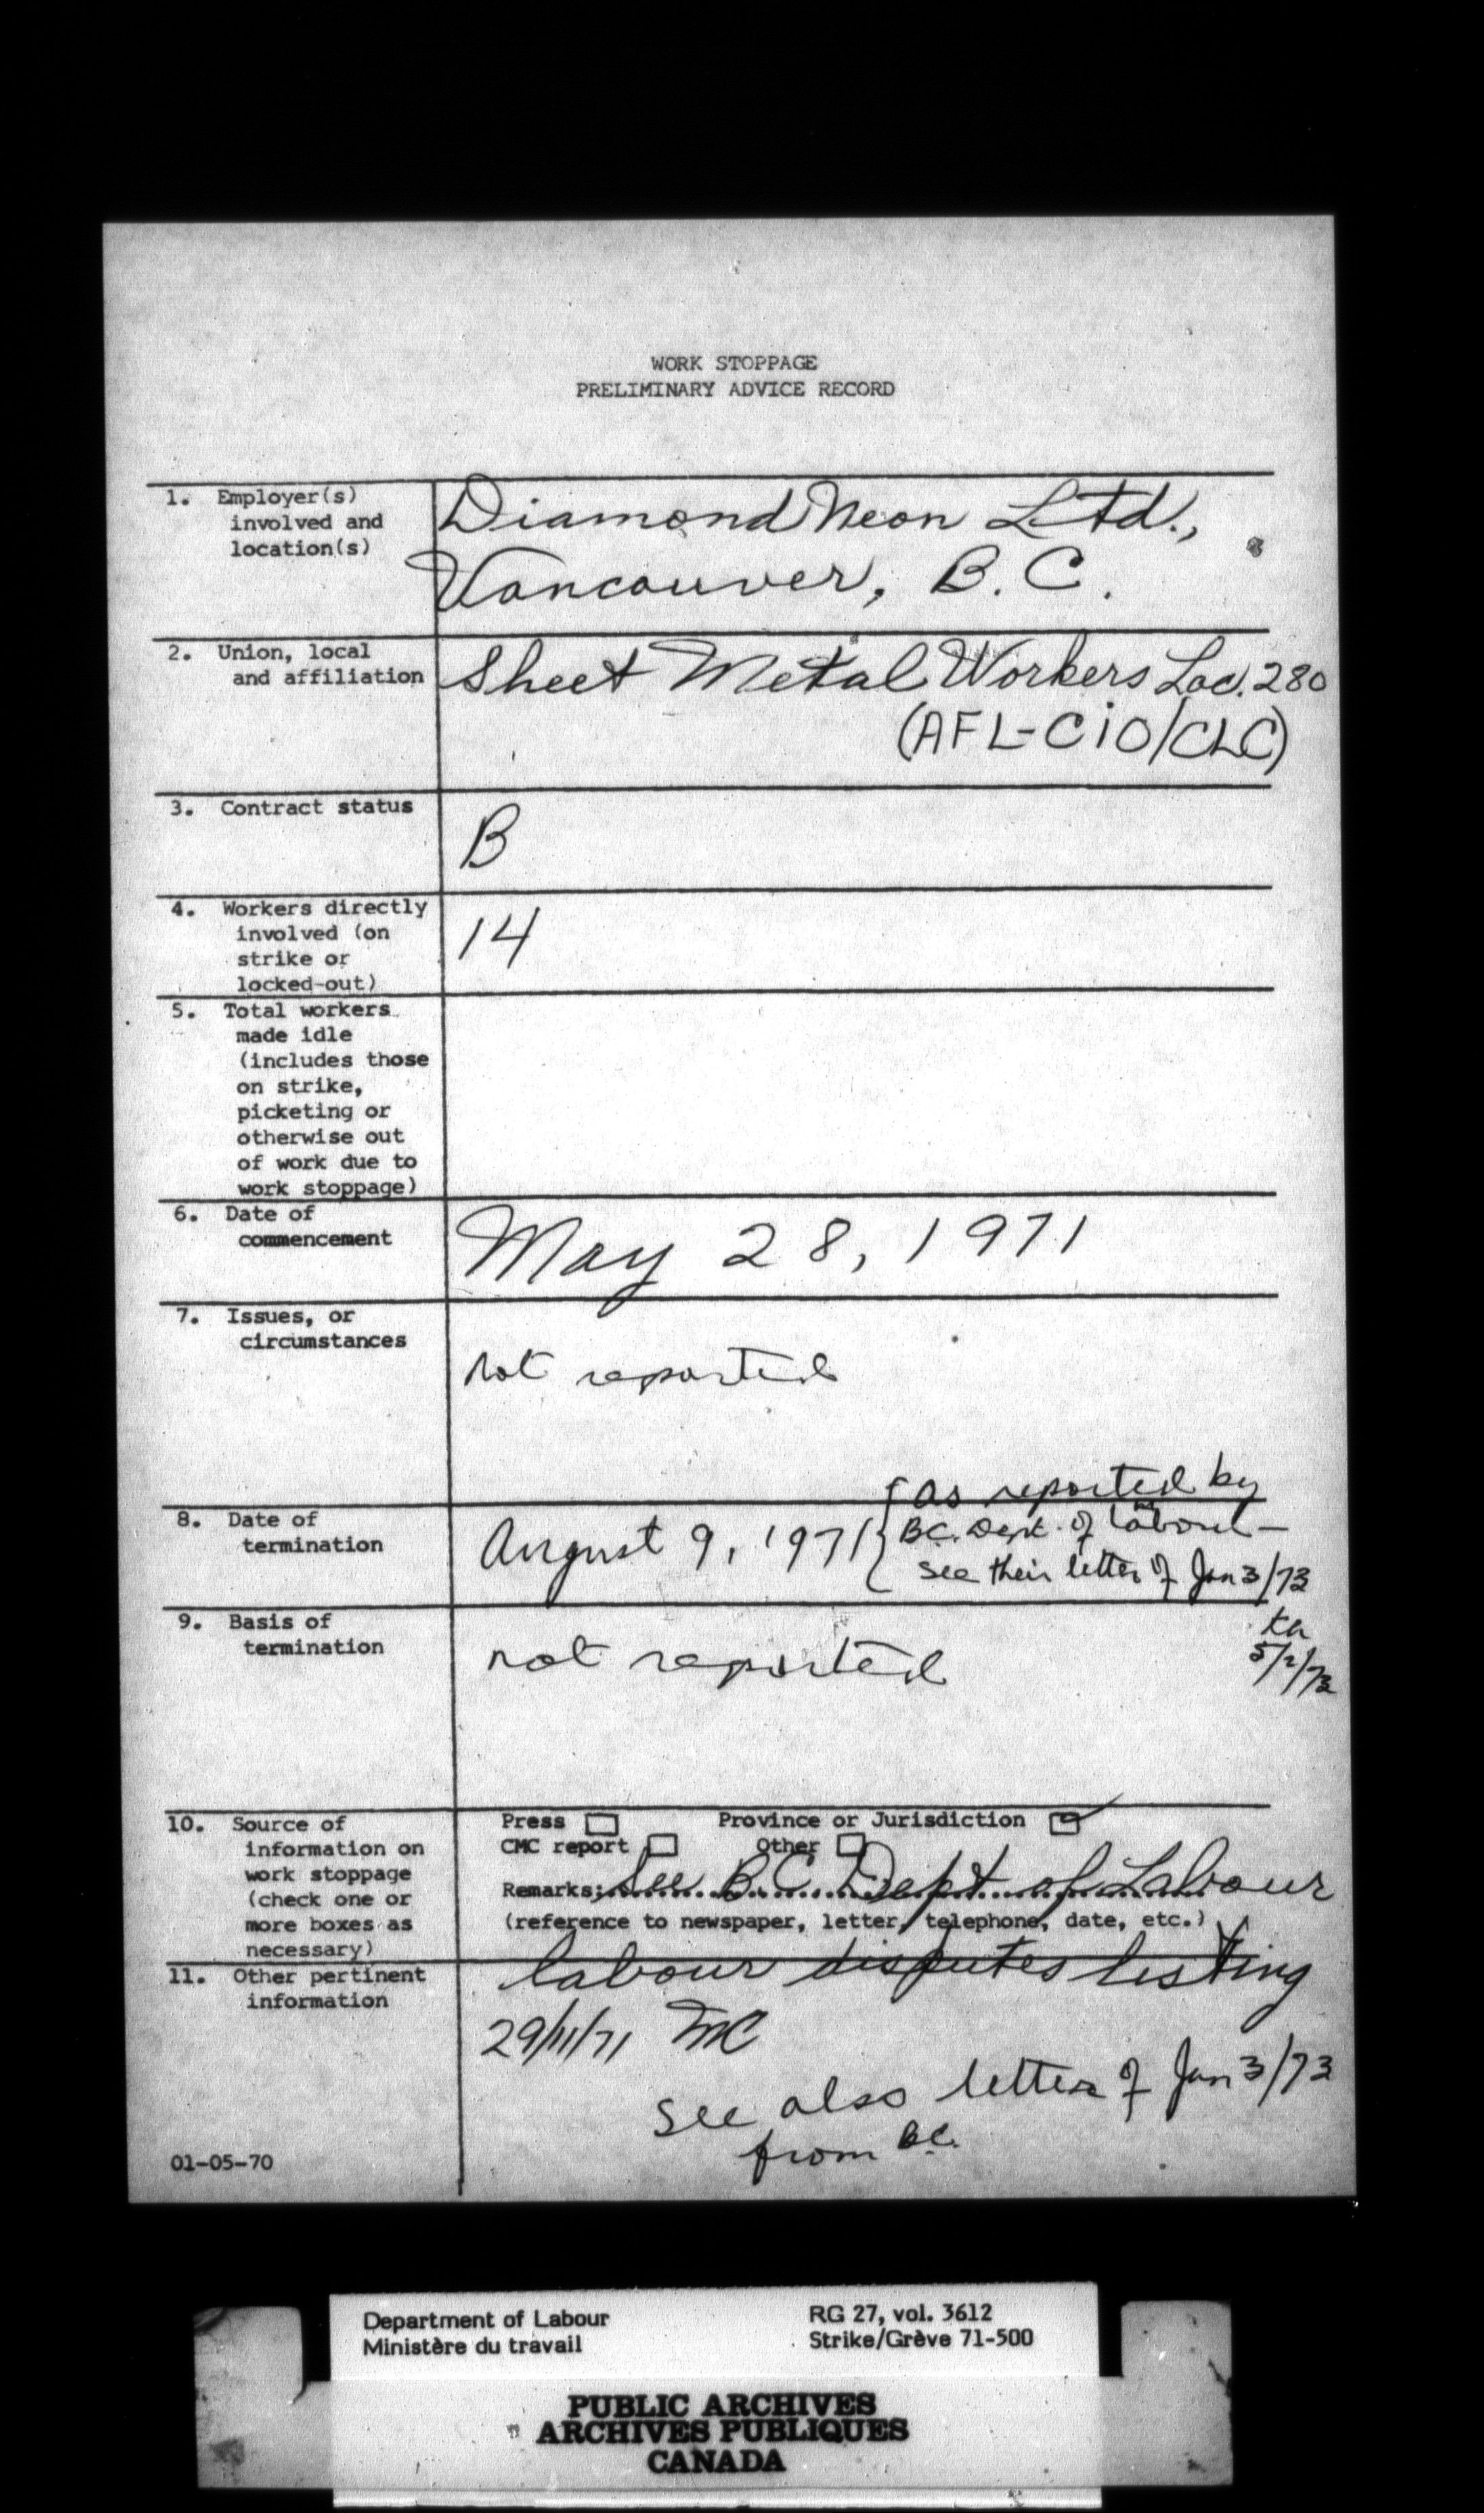 WORK STOPPAGE
PRELIMINARY ADVICE RECORD
1. Employer(s)
involved and
location(s)
Diamond Neon Ltd.,
Vancouver, B.C.
2. Union, local
and affiliation
Sheet Metal Workers Loc. 280
(AFL-CIO/CLC)
3. Contract status
B
4. Workers directly
involved (on
strike or
locked-out)
14
5. Total workers
made idle
(includes those
on strike,
picketing or
otherwise out
of work due to
work stoppage)
6. Date of
commencement
May 28, 1971
7. Issues, or
circumstances
not reported
8. Date of
termination
August 9, 1971
as reported by
B.C. Dept. of Labour –
see their letter of Jan 3/73
9. Basis of
termination
not reported
5/2/73
10. Source of
information on
work stoppage
(check one or
more boxes as
necessary)
Press Province or Jurisdiction
CMC report Other
Remarks: See B.C. Dept of Labour
(reference to newspaper, letter, telephone, date, etc.)
labour disputes listing
11. Other pertinent
information
29/11/71 MC
see also letter of Jan 3/73
from B.C.
01-05-70
Department of Labour
Ministère du travail
RG 27, vol. 3612
Strike/Grève 71-500
PUBLIC ARCHIVES
ARCHIVES PUBLIQUES
CANADA